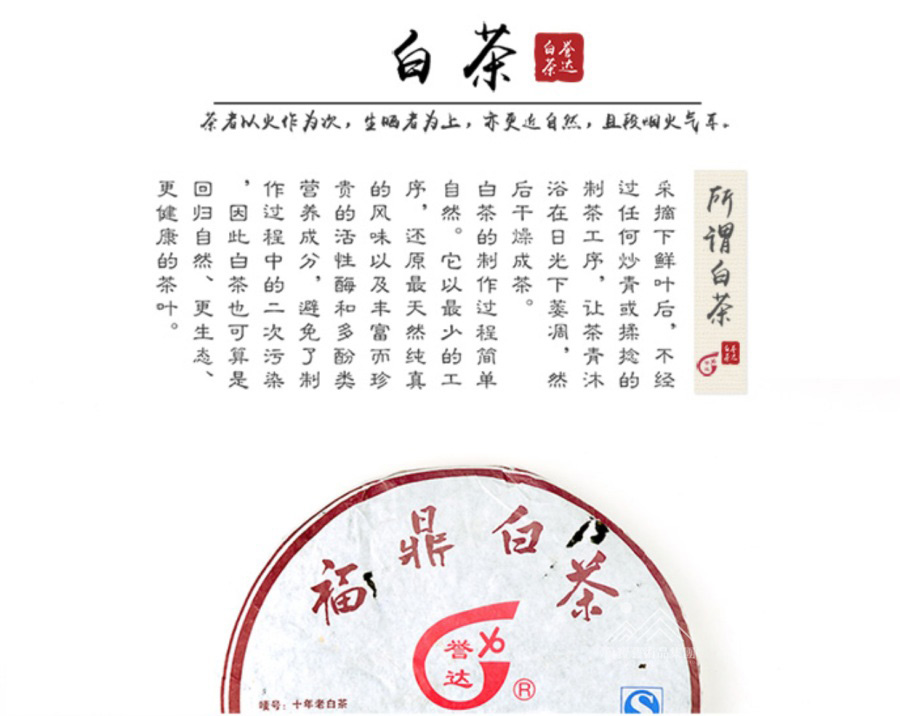 白茶
誉达
白茶
茶者以火作为次，生晒者为上，亦更近自然，且段烟火气耳。
所谓白茶
采摘下鲜叶后，不经
过任何炒青或揉捻的
制茶工序，让茶青沐
浴在日光下萎凋，然
后干燥成茶。
白茶的制作过程简单
自然。它以最少的工
序，还原最天然纯真
的风味以及丰富而珍
贵的活性酶和多酚类
营养成分，避免了制
作过程中的二次污染
，因此白茶也可算是
回归自然、更生态、
更健康的茶叶。
福鼎白茶
誉达
®
唛号：十年老白茶
S